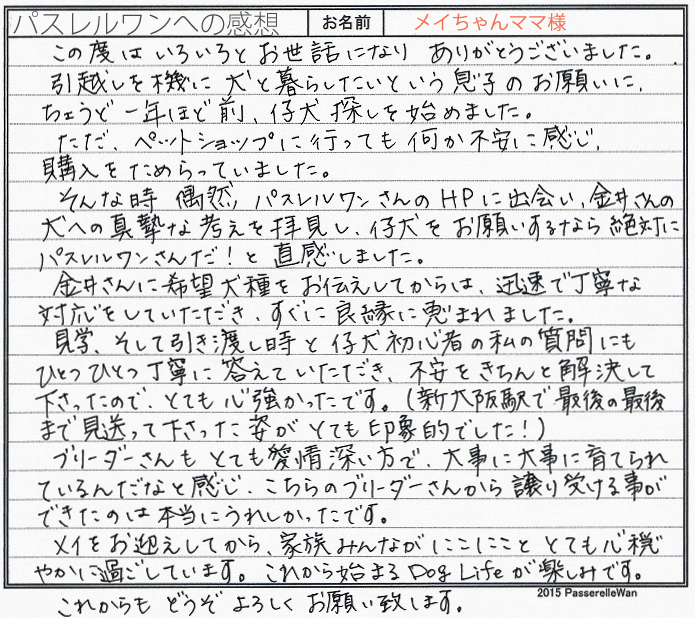 パスレルワンへの感想 お名前 メイちゃんママ様
この度はいろいろとお世話になり ありがとうございました。
引越しを機に犬と暮らしたいという息子のお願いに、
ちょうど一年ほど前、仔犬探しを始めました。
ただ、ペットショップに行っても何か不安に感じ、
購入をためらっていました。
そんな時 偶然、パスレルワンさんのHPに出会い、金井さんの
犬への真摯な考えを拝見し、仔犬をお願いするなら絶対に
パスレルワンさんだ!と直感しました。
金井さんに希望犬種をお伝えしてからは、迅速で丁寧な
対応をしていただき、すぐに良縁に恵まれました。
見学、そして引き渡し時と仔犬初心者の私の質問にも
ひとつひとつ丁寧に答えていただき、不安をきちんと解決して
下さったので、とても心強かったです。(新大阪駅で最後の最後
まで見送って下さった姿がとても印象的でした!)
ブリーダーさんもとても愛情深い方で、大事に大事に育てられ
ているんだなと感じ、こちらのブリーダーさんから譲り受ける事が
できたのは本当にうれしかったです。
メイをお迎えしてから、家族みんながにこにこと とても心穏
やかに過ごしています。これから始まるDog Lifeが楽しみです。
2015 PasserelleWan
これからもどうぞよろしくお願い致します。